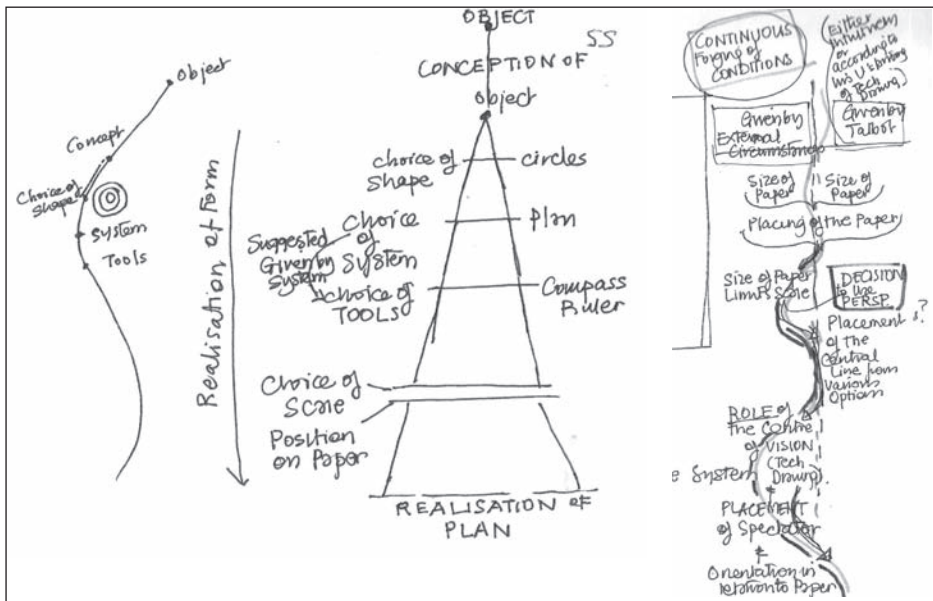 Object
Concept
Choice of
Shape
System
Tools
Realisation of Form
OBJECT
SS
CONCEPTION OF
Object
choice of
shape
circles
Choice
of
System
Plan
Suggested
Given by
System
Choice of
TOOLS
Compass
Ruler
Choice of
Scale
Position
on Paper
REALISATION OF
PLAN
CONTINUOUS
Forging of
CONDITIONS
(Either
or
according to
his
of Tech
Drawing)
Given by
External
Circumstances
Given by
Talbot
Size of
Paper
Size of
Paper
Placing of the Paper
Size of Paper
Limits Scale
DECISION
to use
PERSP.
Placement s?
of the
Central
Line from
Various
Options
ROLE of
the Centre
of VISION
(Tech
Drawing).
e System
PLACEMENT
of Spectator
+
Orientation in
relation to Paper